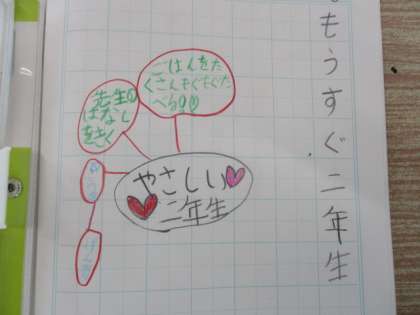 もうすぐ二年生
ごはんをた
くさんもぐもぐた
べる
先生の
はなし
をきく
やさしい
二年生